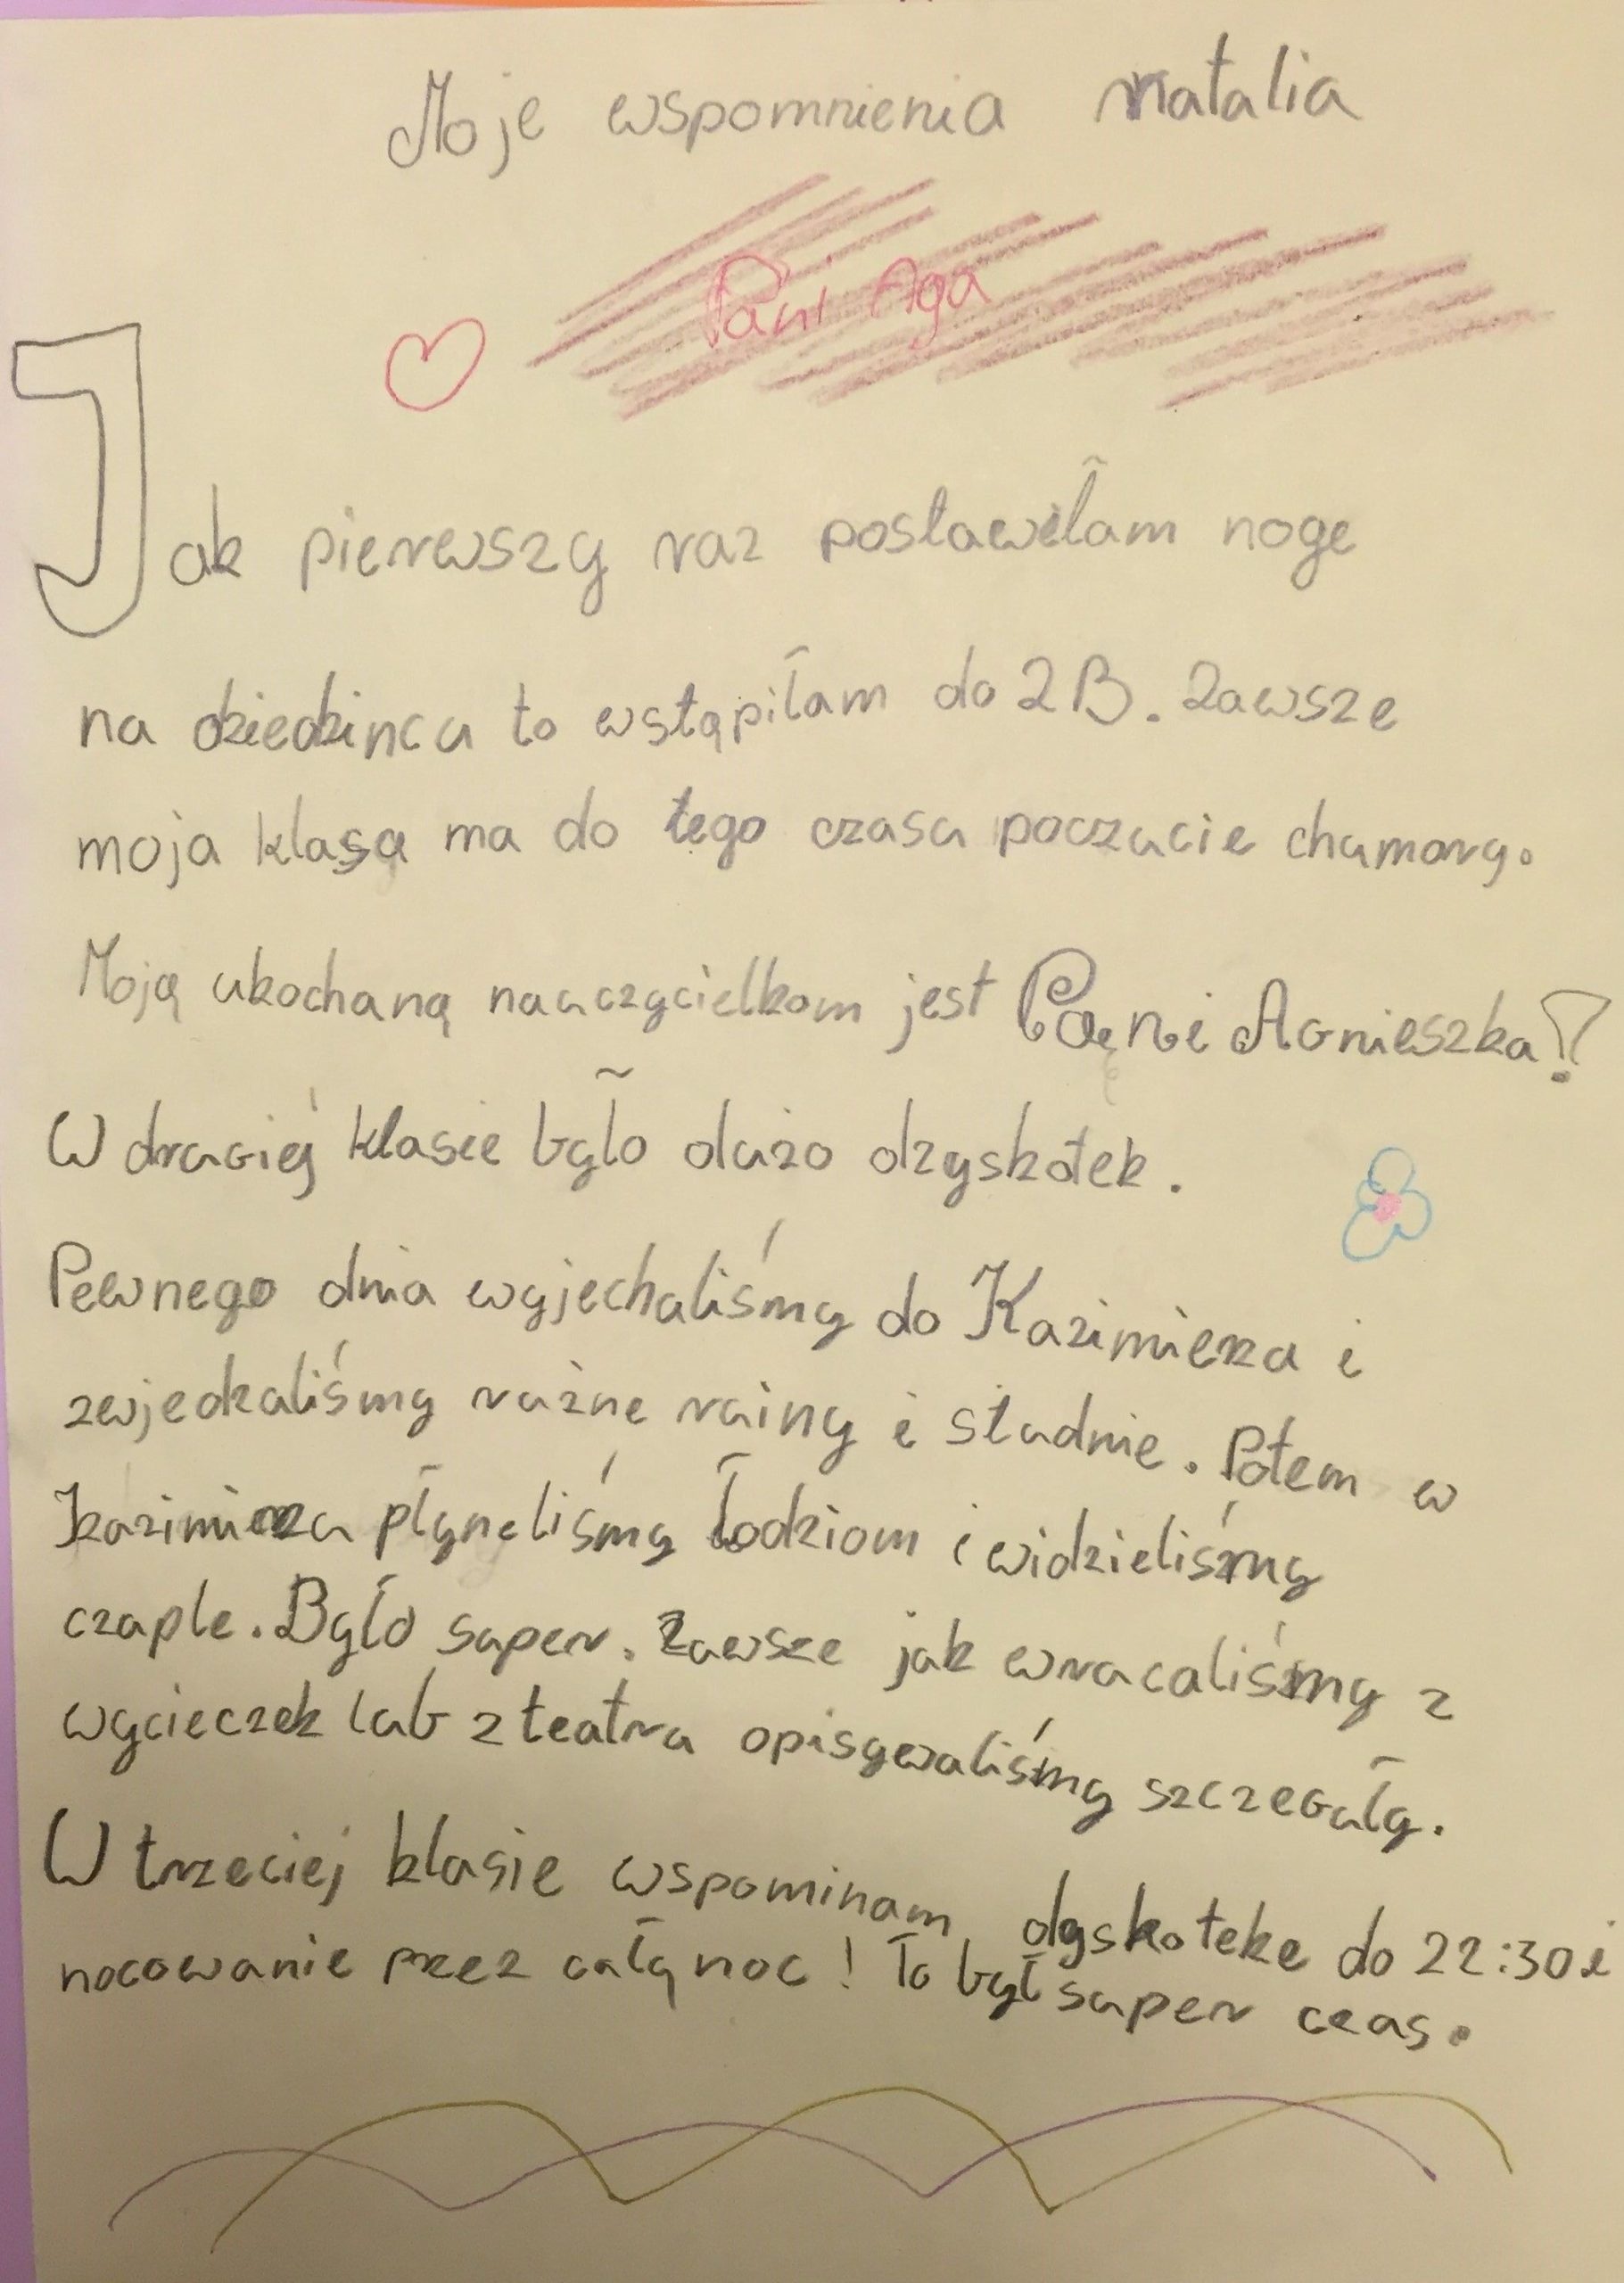 Moje wspomnienia Natalia
Pani Aga
Jak pierwszy raz postawiłam noge
na dziedzincu to wstąpiłam do 2B. Zawsze
moja klasa ma do tego czasu poczucie chumory.
Moją ukochaną nauczycielkom jest Pani Agnieszka!
W drugiej klasie było dużo dzyskotek.
Pewnego dnia wyjechaliśmy do Kazimierza i
zwjedzaliśmy rużne rainy i studnie. Potem w
kazimierzu płyneliśmy łodziom i widzieliśmy
czaple. Było super. Zawsze jak wracaliśmy z
wycieczek lub z teatru opisywaliśmy szczeguły.
W trzeciej klasie wspominam dyskoteke do 22:30 i
nocowanie przez całą noc! To był super czas.